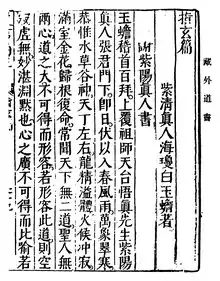 指玄篇
紫清真人海瓊白玉蟾著
附紫陽真人書
玉蟾稽首百拜上覆祖師天台悟真先生紫陽
真人張君門下即日伏以入春風雨萬象翠寒
恭惟水草谷神天丁左右龍精溢體火候冲寂
滿室金花歸根復命常聞天下無二道聖人無
兩心道之大不可得而形容若形容此道則空
虛無妙湛淵默也心之廣不可得而比喻若
藏外道書